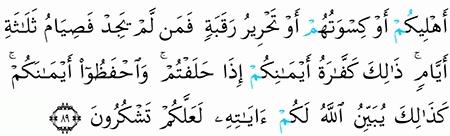 أَهْلِيكُمْ أَوْ كِسْوَتُهُمْ أَوْ تَحْرِيرُ رَقَبَةٍ ۖ فَمَن لَّمْ يَجِدْ فَصِيَامُ ثَلَـٰثَةِ
أَيَّامٍ ۚ ذَٰلِكَ كَفَّـٰرَةُ أَيْمَـٰنِكُمْ إِذَا حَلَفْتُمْ ۚ وَٱحْفَظُوٓا۟ أَيْمَـٰنَكُمْ ۚ
كَذَٰلِكَ يُبَيِّنُ ٱللَّهُ لَكُمْ ءَايَـٰتِهِۦ لَعَلَّكُمْ تَشْكُرُونَ ﴿٨٩﴾